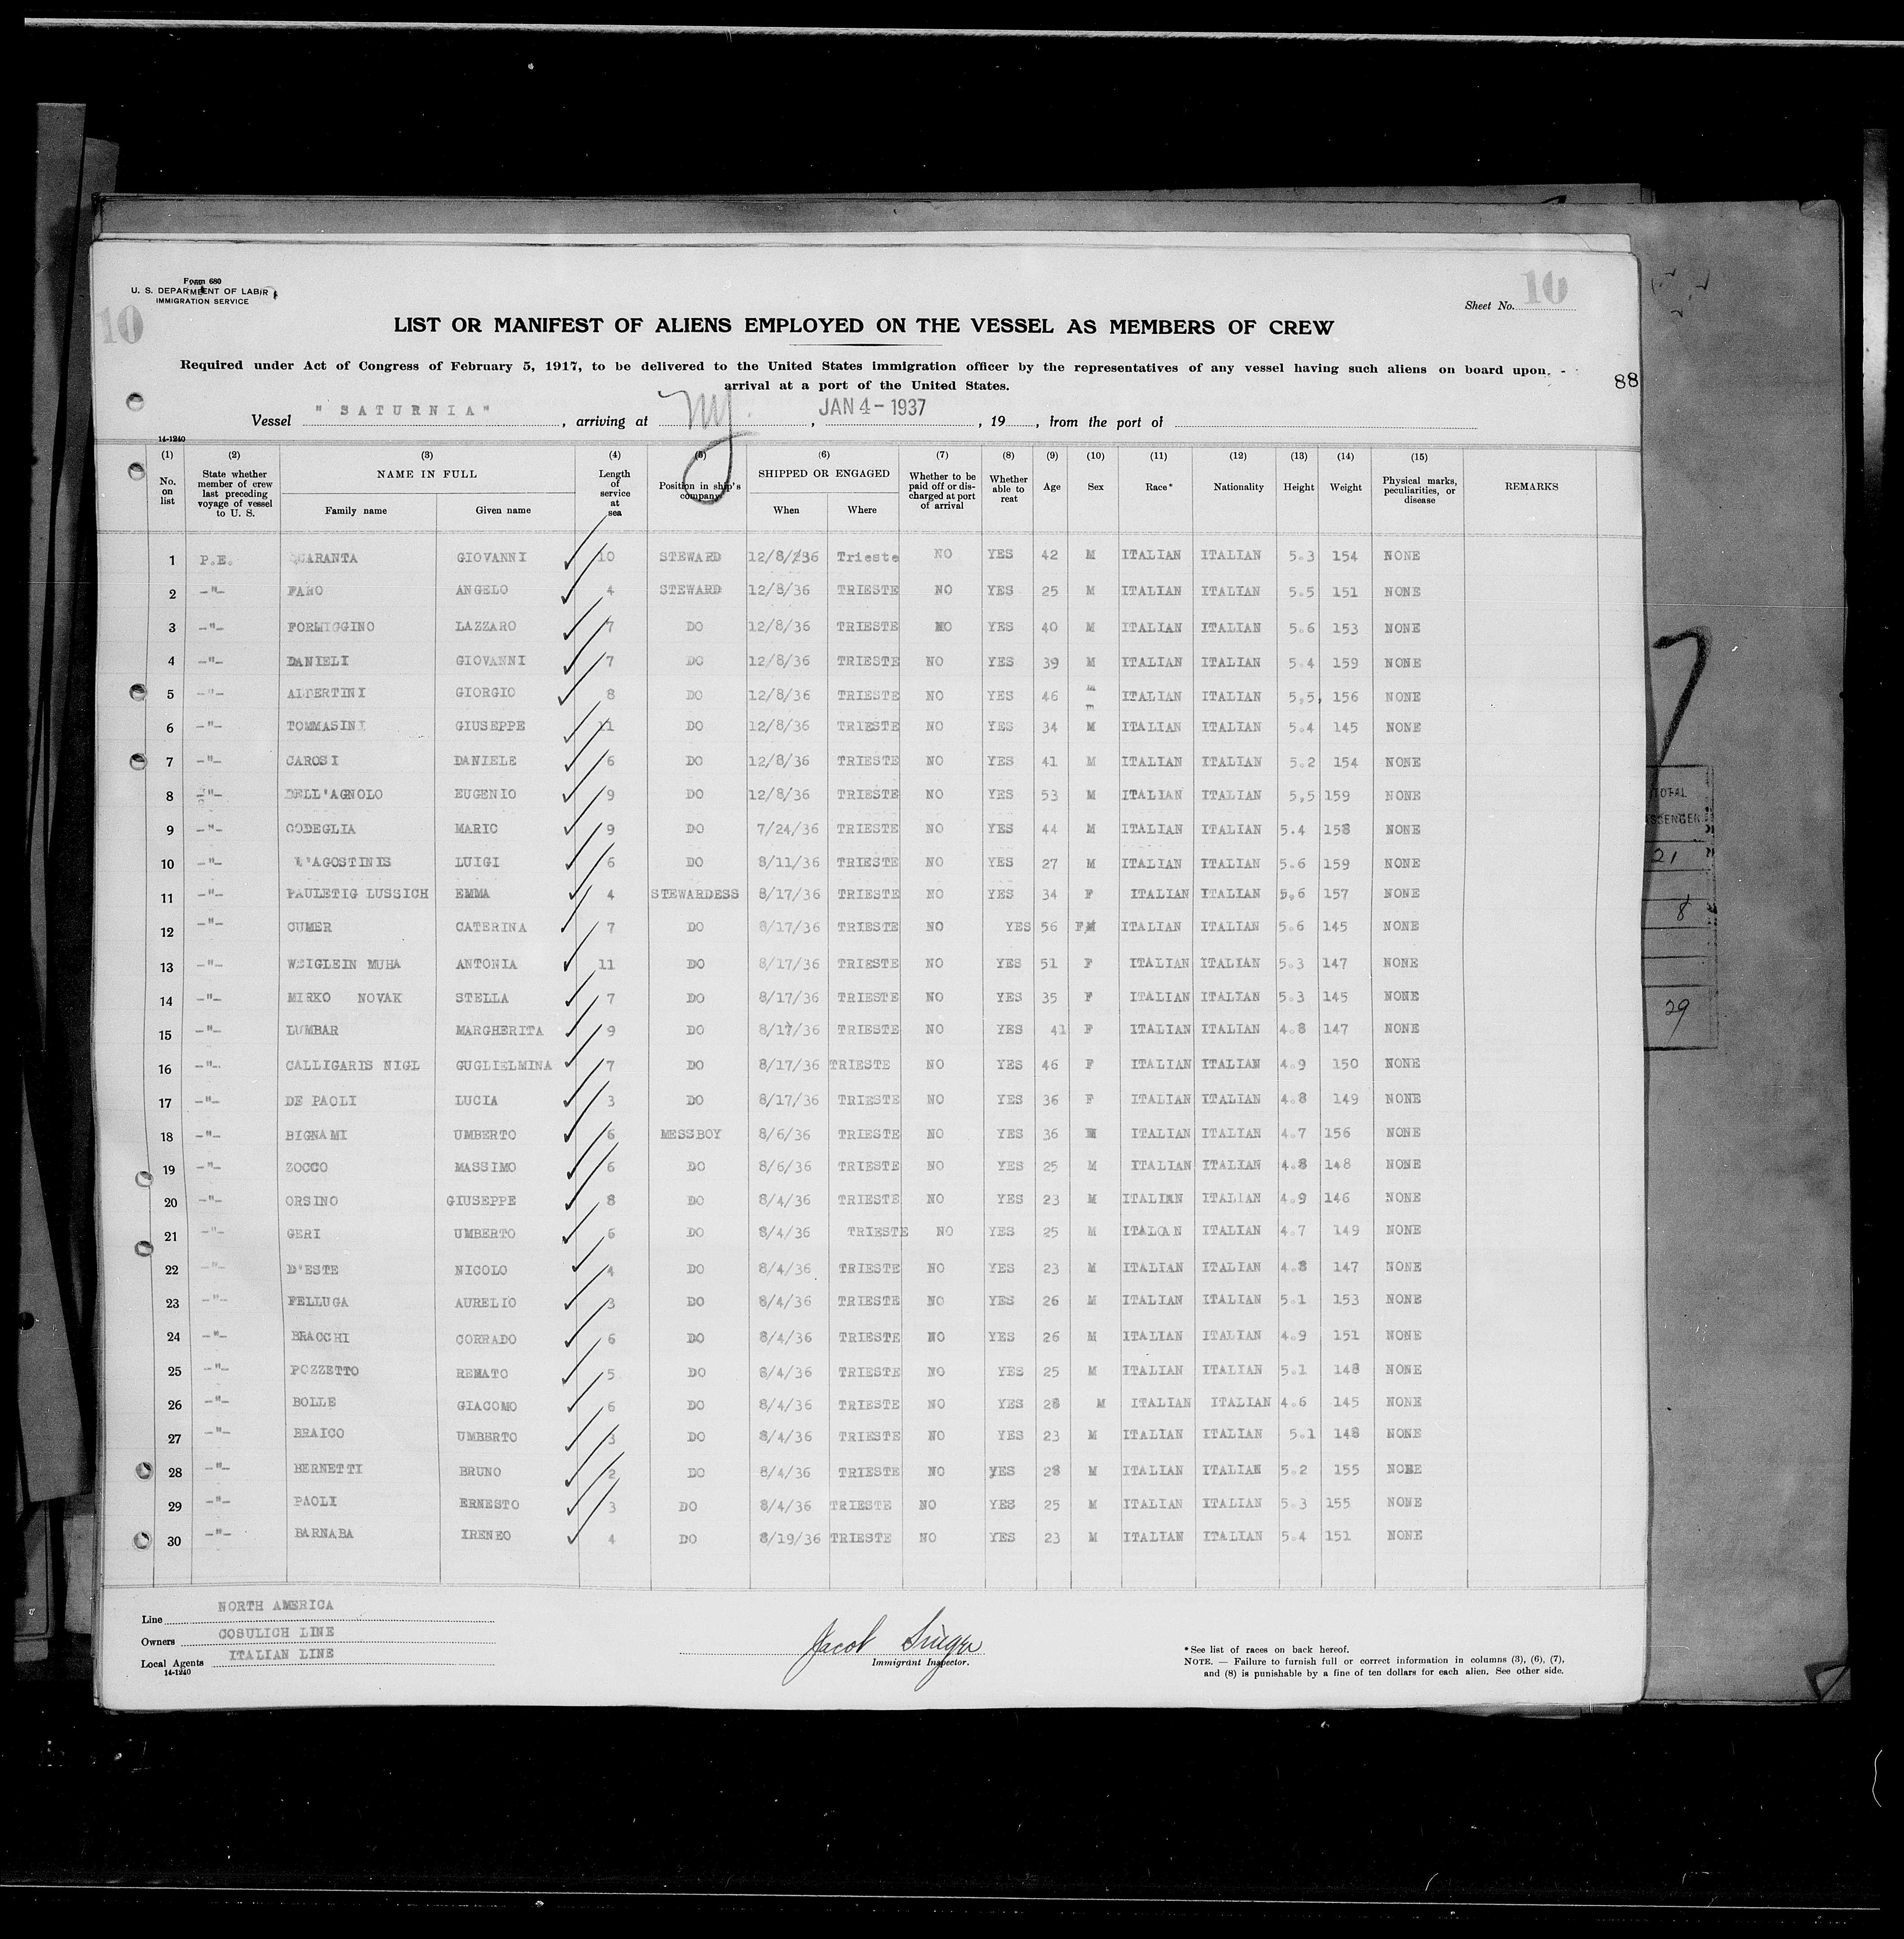 Form 680
U. S. DEPARTMENT OF LABOR
IMMIGRATION SERVICE
10
10
Sheet No.
LIST OR MANIFEST OF ALIENS EMPLOYED ON THE VESSEL AS MEMBERS OF CREW
Required under Act of Congress of February 5, 1917, to be delivered to the United States immigration officer by the representatives of any vessel having such aliens on board upon
arrival at a port of the United States.
88
Vessel "SATURNIA", arriving at NY, JAN 4 - 1937, 19, from the port of
14-1240
(1) (2) (3) (4) (5) (6) (7) (8) (9) (10) (11) (12) (13) (14) (15)
No. on list State whether member of crew last preceding voyage of vessel to U. S. NAME IN FULL Family name Given name Length of service at sea Position in ship's company SHIPPED OR ENGAGED When Where Whether to be paid off or discharged at port of arrival Whether able to reat Age Sex Race* Nationality Height Weight Physical marks, peculiarities, or disease REMARKS
1 P.E. QUARANTA GIOVANNI 10 STEWARD 12/8/36 Trieste NO YES 42 M ITALIAN ITALIAN 5.3 154 NONE
2 -"- FARO ANGELO 4 STEWARD 12/8/36 TRIESTE NO YES 25 M ITALIAN ITALIAN 5.5 151 NONE
3 -"- FORMIGGINO LAZZARO 7 DO 12/8/36 TRIESTE NO YES 40 M ITALIAN ITALIAN 5.6 153 NONE
4 -"- DANIELI GIOVANNI 7 DO 12/8/36 TRIESTE NO YES 39 M ITALIAN ITALIAN 5.4 159 NONE
5 -"- GIORGIO 8 DO 12/8/36 TRIESTE NO YES 46 M ITALIAN ITALIAN 5,5, 156 NONE
6 -"- TOMMASINI GIUSEPPE 11 DO 12/8/36 TRIESTE NO YES 34 M ITALIAN ITALIAN 5.4 145 NONE
7 -"- CAROSI DANIELE 6 DO 12/8/36 TRIESTE NO YES 41 M ITALIAN ITALIAN 5.2 154 NONE
8 -"- DELL'AGNOLO EUGENIO 9 DO 12/8/36 TRIESTE NO YES 53 M ITALIAN ITALIAN 5,5 159 NONE
9 -"- CODEGLIA MARIO 9 DO 7/24/36 TRIESTE NO YES 44 M ITALIAN ITALIAN 5.4 158 NONE
10 -"- D'AGOSTINIS LUIGI 6 DO 8/11/36 TRIESTE NO YES 27 M ITALIAN ITALIAN 5.6 159 NONE
11 -"- PAULETIG LUSSICH EMMA 4 STEWARDESS 8/17/36 TRIESTE NO YES 34 F ITALIAN ITALIAN 5,6 157 NONE
12 -"- CUMER CATERINA 7 DO 8/17/36 TRIESTE NO YES 56 F ITALIAN ITALIAN 5.6 145 NONE
13 -"- WEIGLEIN MUHA ANTONIA 11 DO 8/17/36 TRIESTE NO YES 51 F ITALIAN ITALIAN 5.3 147 NONE
14 -"- MIRKO NOVAK STELLA 7 DO 8/17/36 TRIESTE NO YES 35 F ITALIAN ITALIAN 5.3 145 NONE
15 -"- LUMBAR MARGHERITA 9 DO 8/17/36 TRIESTE NO YES 41 F ITALIAN ITALIAN 4.8 147 NONE
16 -"- CALLIGARIS NIGL GUGLIELMINA 7 DO 8/17/36 TRIESTE NO YES 46 F ITALIAN ITALIAN 4.9 150 NONE
17 -"- DE PAOLI LUCIA 3 DO 8/17/36 TRIESTE NO YES 36 F ITALIAN ITALIAN 4.8 149 NONE
18 -"- BIGNAMI UMBERTO 6 MESSBOY 8/6/36 TRIESTE NO YES 36 M ITALIAN ITALIAN 4.7 156 NONE
19 -"- ZOCCO MASSIMO 6 DO 8/6/36 TRIESTE NO YES 25 M ITALIAN ITALIAN 4.8 148 NONE
20 -"- ORSINO GIUSEPPE 8 DO 8/4/36 TRIESTE NO YES 23 M ITALIAN ITALIAN 4.9 146 NONE
21 -"- GERI UMBERTO 6 DO 8/4/36 TRIESTE NO YES 25 M ITALOAN ITALIAN 4.7 149 NONE
22 -"- D'ESTE NICOLO 4 DO 8/4/36 TRIESTE NO YES 23 M ITALIAN ITALIAN 4.8 147 NONE
23 -"- FELLUGA AURELIO 3 DO 8/4/36 TRIESTE NO YES 26 M ITALIAN ITALIAN 5.1 153 NONE
24 -"- BRACCHI CORRADO 6 DO 8/4/36 TRIESTE NO YES 26 M ITALIAN ITALIAN 4.9 151 NONE
25 -"- POZZETTO RENATO 5 DO 8/4/36 TRIESTE NO YES 25 M ITALIAN ITALIAN 5.1 148 NONE
26 -"- BOLLE GIACOMO 6 DO 8/4/36 TRIESTE NO YES 28 M ITALIAN ITALIAN 4.6 145 NONE
27 -"- BRAICO UMBERTO 3 DO 8/4/36 TRIESTE NO YES 23 M ITALIAN ITALIAN 5.1 148 NONE
28 -"- BERNETTI BRUNO 2 DO 8/4/36 TRIESTE NO YES 28 M ITALIAN ITALIAN 5.2 155 NONE
29 -"- PAOLI ERNESTO 3 DO 8/4/36 TRIESTE NO YES 25 M ITALIAN ITALIAN 5.3 155 NONE
30 -"- BARNABA IRENEO 4 DO 8/19/36 TRIESTE NO YES 23 M ITALIAN ITALIAN 5.4 151 NONE
TOTAL
21
8
29
Line NORTH AMERICA
Owners COSULICH LINE
Local Agents ITALIAN LINE
14-1240
Jacob Singer
Immigrant Inspector.
*See list of races on back hereof.
NOTE. — Failure to furnish full or correct information in columns (3), (6), (7),
and (8) is punishable by a fine of ten dollars for each alien. See other side.